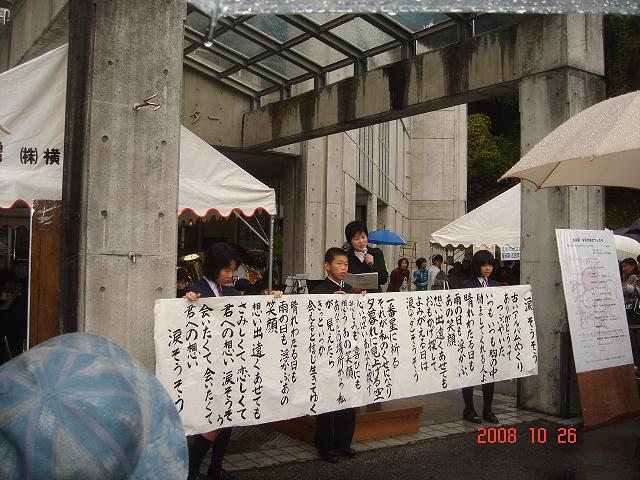 (株)横
ター
涙そうそう
古いアルバムめくり
ありがとうって
つぶやいた
いつもいつも胸の中
励ましてくれる人よ
晴れわたる日も
雨の日も浮かぶ
あの笑顔
想い出遠くあせても
おもかげ探して
よみがえる日は
涙そうそう
一番星に祈る
それが私のくせになり
夕暮れに見上げる空
心いっぱい
悲しみにも喜びにも
おもうあの笑顔
あなたの場所から私
が見えたら
きっといつか
会えると信じ生きてゆく
晴れわたる日も
雨の日も浮かぶあの
笑顔
想い出遠くあせても
さみしくて恋しくて
君への想い涙そうそう
会いたくて会いたくて
君への想い
涙そうそう
2008 10 26